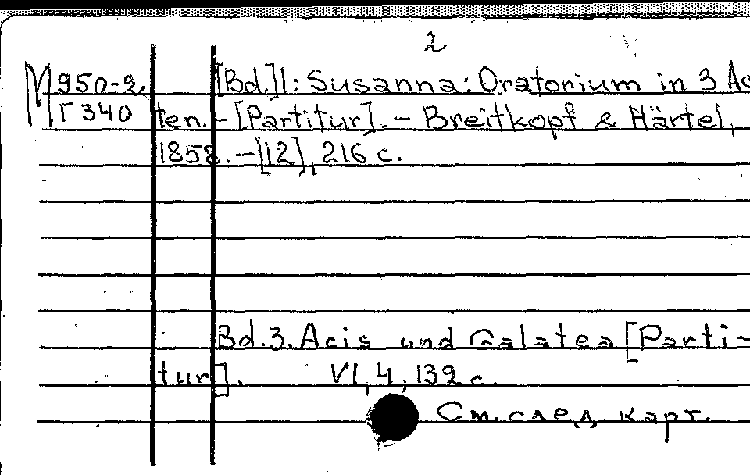 2
М950-2. [Bd.]1: Susanna: Oratorium in 3 Ac
Г 340 ten. - [Partitur]. - Breitkopf & Härtel,
1858. - [12], 216 с.
Bd.3. Acis und Galatea [Parti-
tur]. VI, 4, 132 с.
См. след. карт.